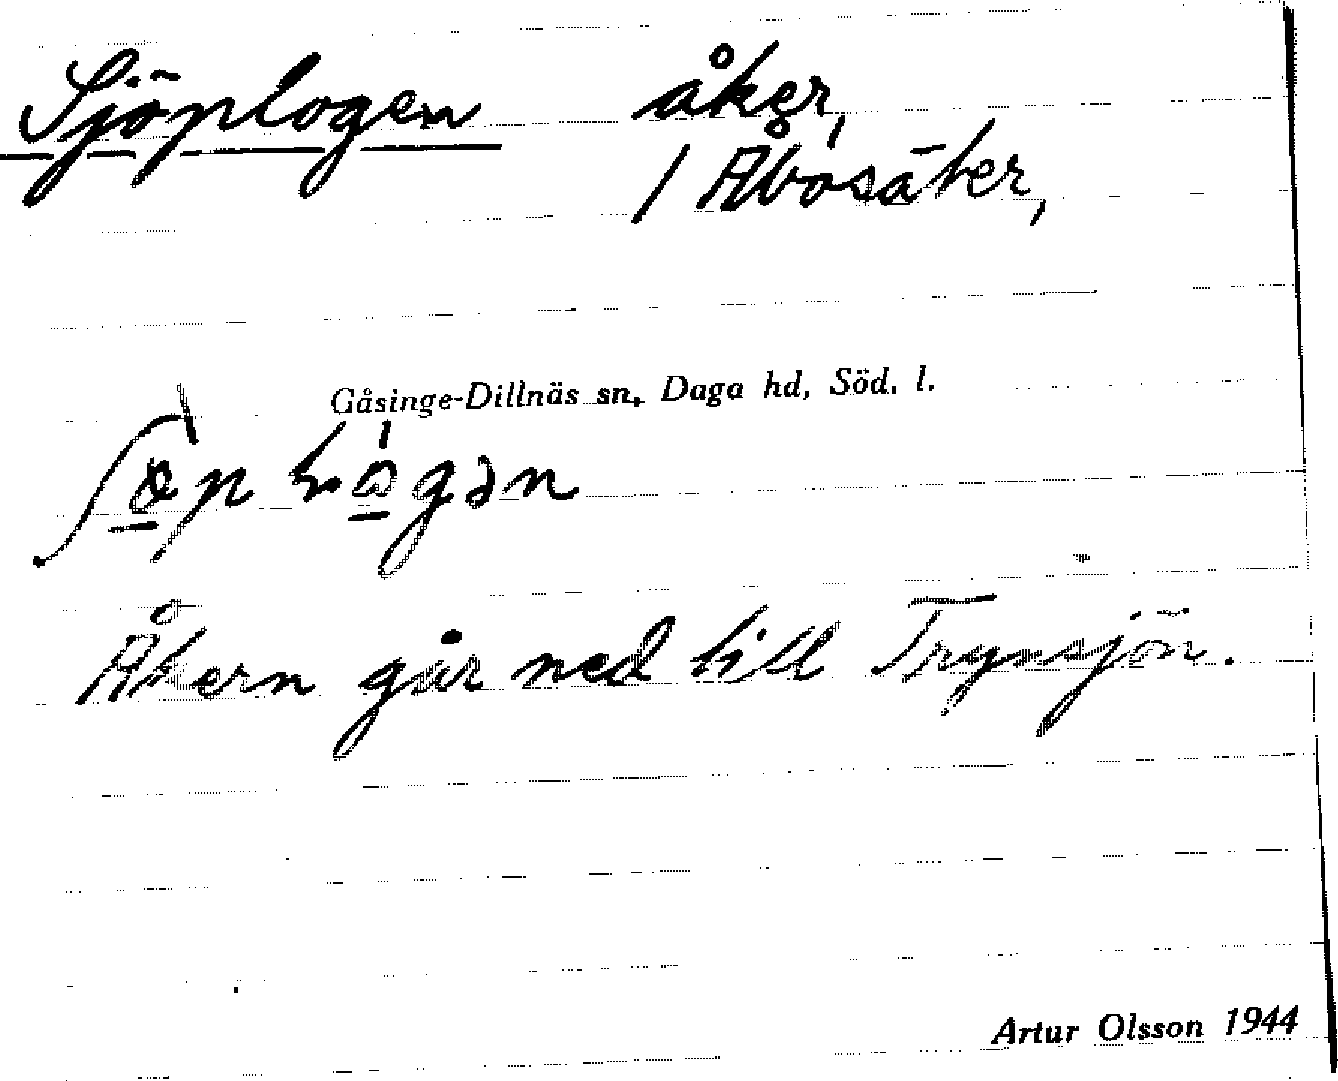 Sjöplogen åker,
/ Åbosäter,
Gåsinge-Dillnäs sn, Daga hd, Söd. l.
Åkern går ned till Trynsjön.
Artur Olsson 1944